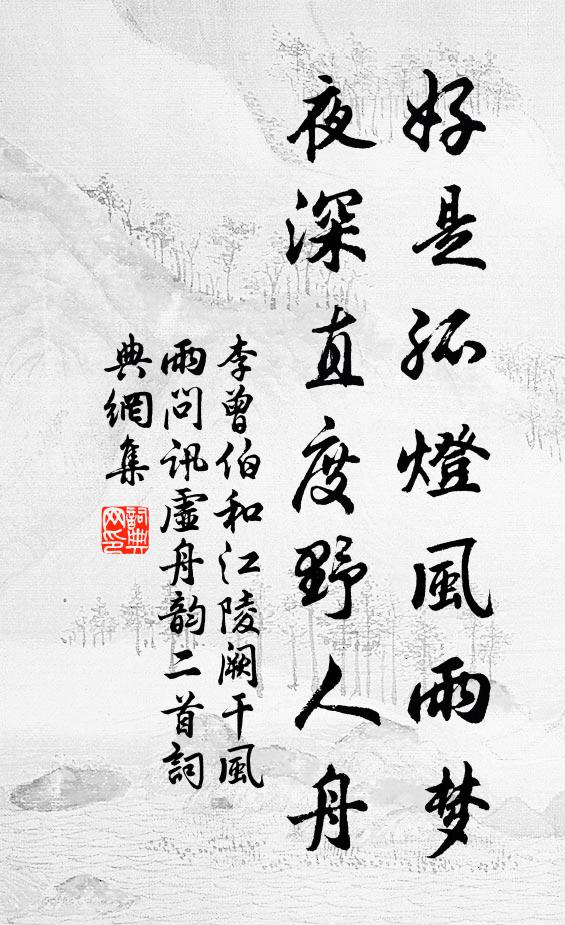 好是孤燈風雨梦
夜深直度野人舟
李曾伯和江陵阙干風
雨問訊虛舟韵二首詞
典網集
詞典
网印